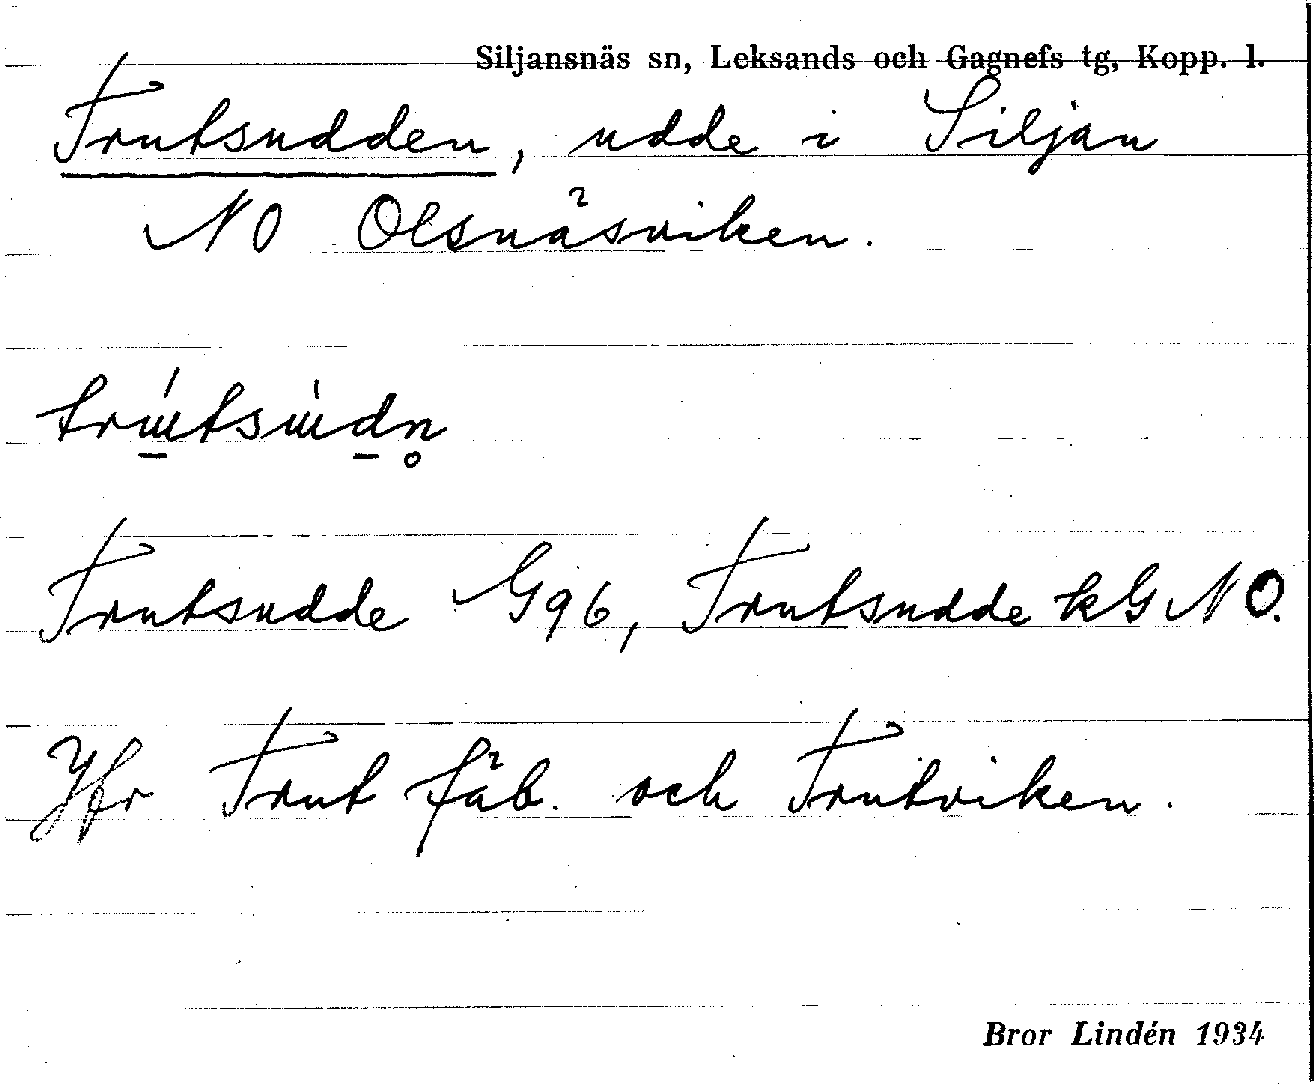 Siljansnäs sn, Leksands och Gagnefs tg, Kopp. l.
Trutsudden, udde i Siljan
NO Olsnäsviken.
Trutsudde G96, Trutsudde kG NO.
Jfr Trut fäb. och Trutviken.
Bror Lindén 1934